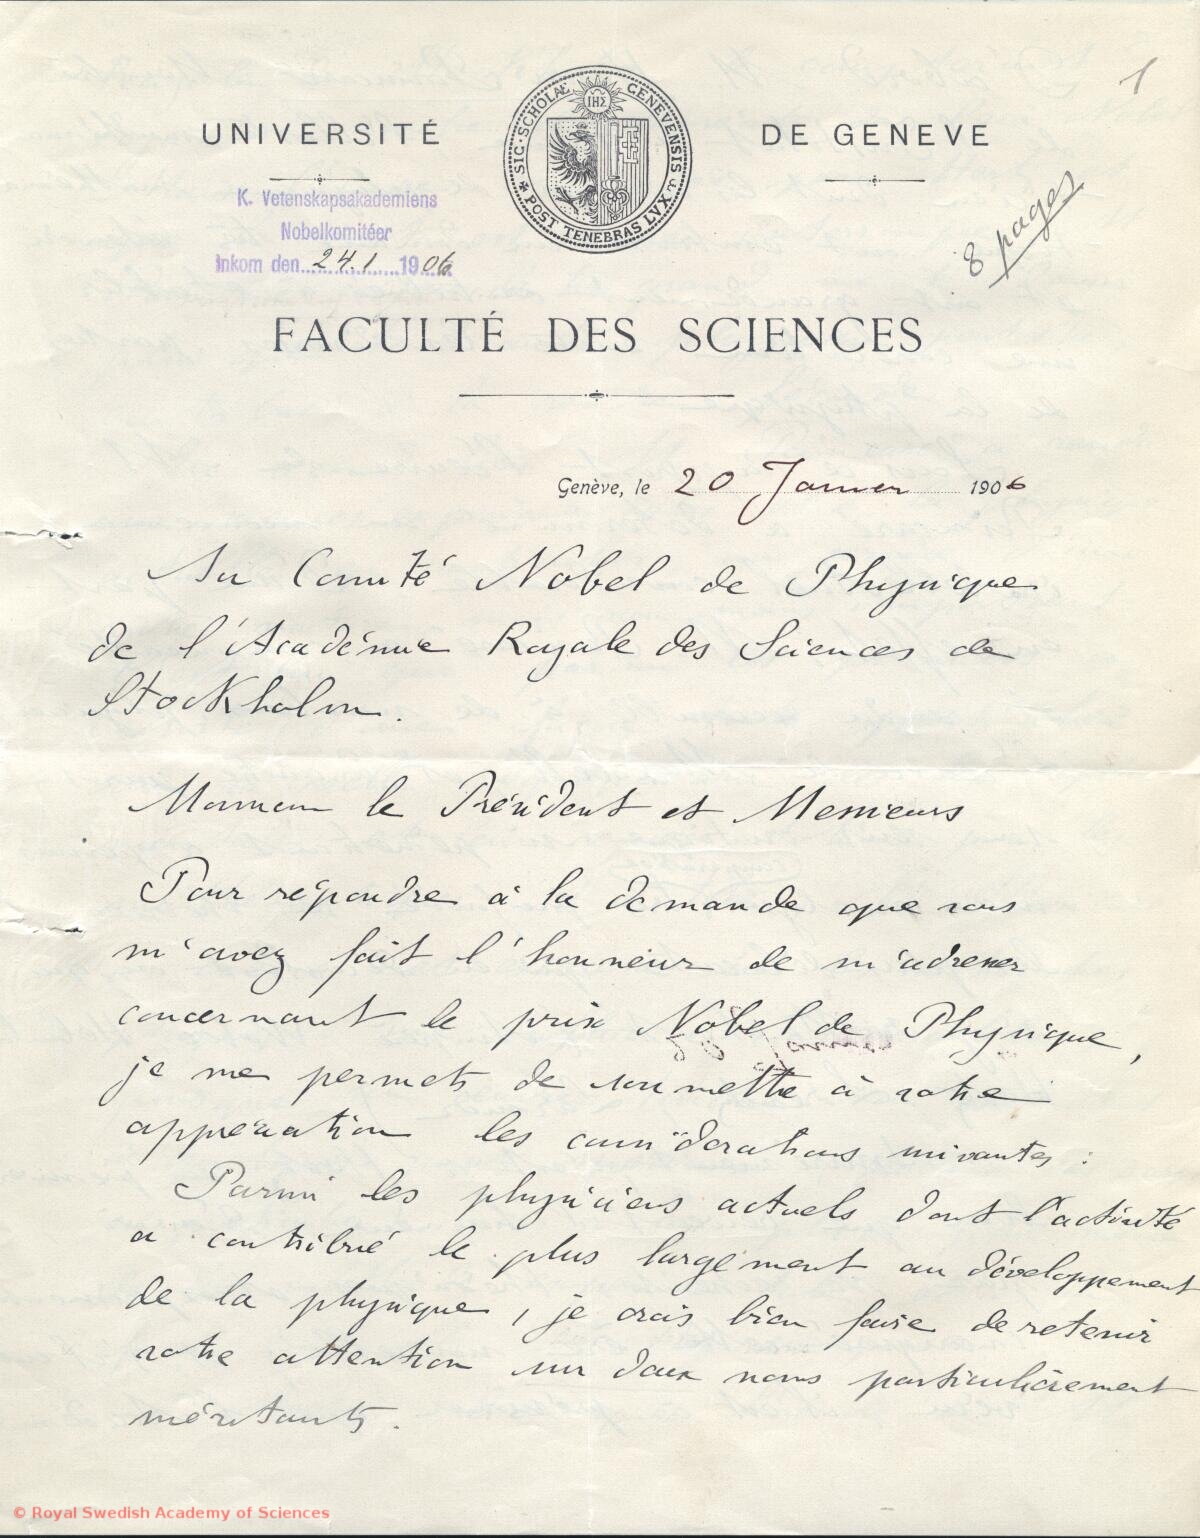 1
UNIVERSITÉ DE GENEVE
SIC·SCHOLAE GENEVENSIS
IHΣ
POST TENEBRAS LVX
K. Vetenskapsakademiens
Nobelkomitéer
Inkom den 24.1 1906
8 pages
FACULTÉ DES SCIENCES
Genève, le 20 Janvier 1906
Au Comité Nobel de Physique
de l'Académie Royale des Sciences de
Stockholm.
Monsieur le Président et Messieurs
Pour répondre à la demande que vous
m'avez fait l'honneur de m'adresser
concernant le prix Nobel de Physique,
je me permets de soumettre à votre
appréciation les considérations suivantes :
Parmi les physiciens actuels dont l'activité
a contribué le plus largement au développement
de la physique, je crois bien faire de retenir
votre attention sur deux noms particulièrement
méritants.
© Royal Swedish Academy of Sciences